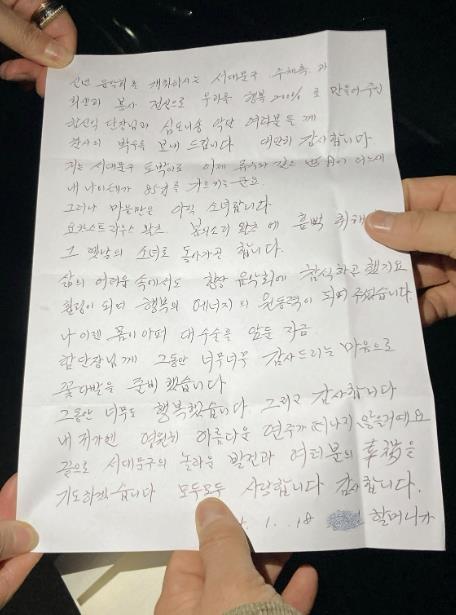 신년 음악회를 개최하시는 서대문구 주최측과
최선과 봉사 정신으로 우리를 행복 200% 로 만들어주신
함신익 단장님과 심포니송 악단 여러분들께
감사의 박수를 보내 드립니다 대단히 감사합니다
저는 서대문구 토박이로 이제 유수와 같은 어느새
내 나이테가 을 가르키는군요
그러나 마음만은 아직 소녀랍니다
요한스트라우스 왈츠 봄의소리 왈츠에 흠뻑 취해
그 옛날의 소녀로 돌아가곤 합니다.
삶의 어려움 속에서도 항상 음악회에 참석하곤 했지요
힐링이 되며 행복의 에너지의 원동력이 되어 주었습니다.
나 이젠 몸이 아퍼 대수술을 앞둔 지금.
함단장님께 그동안 너무너무 감사드리는 마음으로
꽃다발을 준비했습니다
그동안 너무도 행복했습니다 그리고 감사합니다
내 귀가엔 영원히 아름다운 연주가 떠나지 않을거예요
끝으로 서대문구의 놀라운 발전과 여러분의 幸福을
기도하겠습니다 모두모두 사랑합니다 감사합니다.
1. 18 할머니가